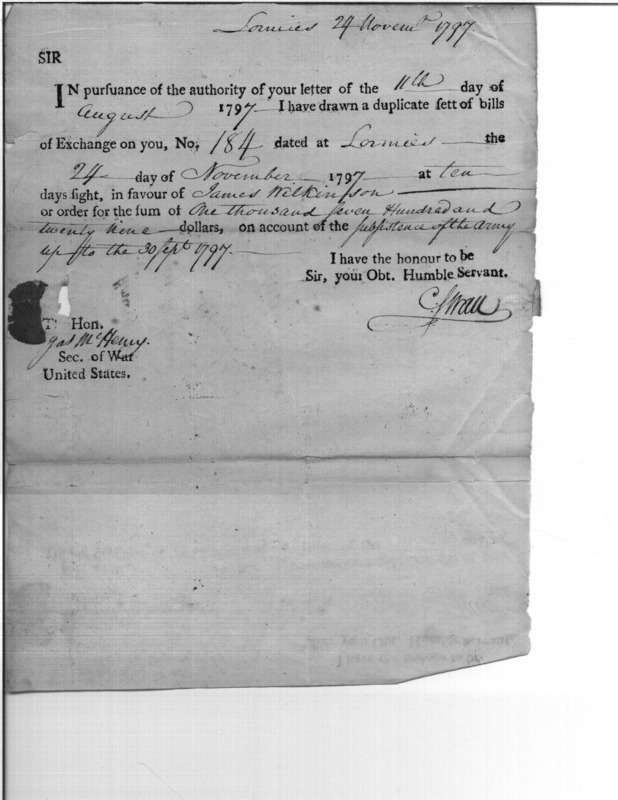 Lormies 24 Novemr. 1797
SIR
IN purſuance of the authority of your letter of the 11th day of
August 1797 I have drawn a duplicate ſett of bills
of Exchange on you, No. 184 dated at Lormies the
24 day of November 1797 at ten
days ſight, in favour of James Wilkinſon
or order for the ſum of One thousand ſeven Hundred and
twenty nine dollars, on account of the ſubſistence of the Army
up to the 30 Sept. 1797.
I have the honour to be
Sir, your Obt. Humble Servant.
C Swan
T: Hon.
Jas McHenry.
Sec. of War
United States.